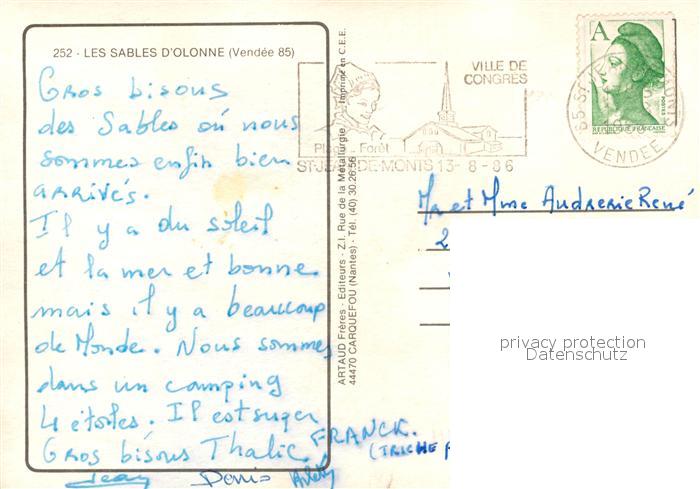 252 - LES SABLES D'OLONNE (Vendée 85)
Gros bisous
des Sables où nous
sommes enfin bien
arrivés.
Il y a du soleil
et la mer et bonne
mais il y a beaucoup
de Monde. Nous sommes
dans un camping
4 étoiles. Il est super
Gros bisous Thalie FRANCK.
Jean Denis
ARTAUD Frères - Editeurs - Z.I. Rue de la Métallurgie - Imprimé en C.E.E.
44470 CARQUEFOU (Nantes) - Tél. (40) 30.26.56
VILLE DE
CONGRES
Forêt
ST-JEAN-DE-MONTS 13-8-86
A
POSTES
REPUBLIQUE FRANÇAISE
VENDEE
Mr et Mme Audrerie René
2
privacy protection
Datenschutz